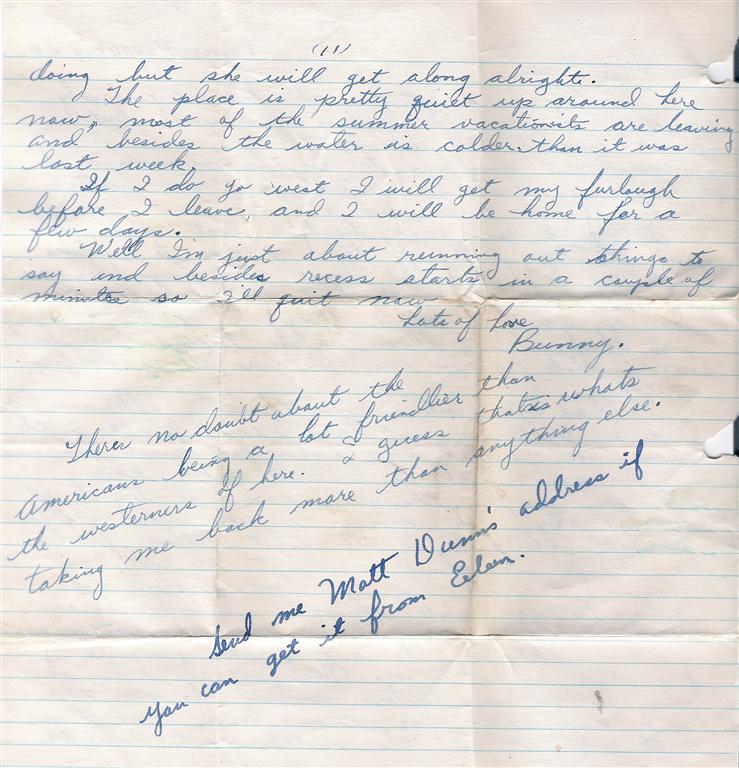 (11)
doing but she will get along alright.
The place is pretty quiet up around here
now, most of the summer vacationists are leaving
and besides the water is colder than it was
last week
If I do go west I will get my furlough
before I leave, and I will be home for a
few days.
Well I'm just about running out things to
say and besides recess starts in a couple of
minutes so I'll quit now
Lots of Love
Bunny.
Theres no doubt about the
Americans being a lot friendlier than
the westerners of here. I guess whats
taking me back more than anything else.
Send me Matt Dunn's address if
you can get it from Eileen.